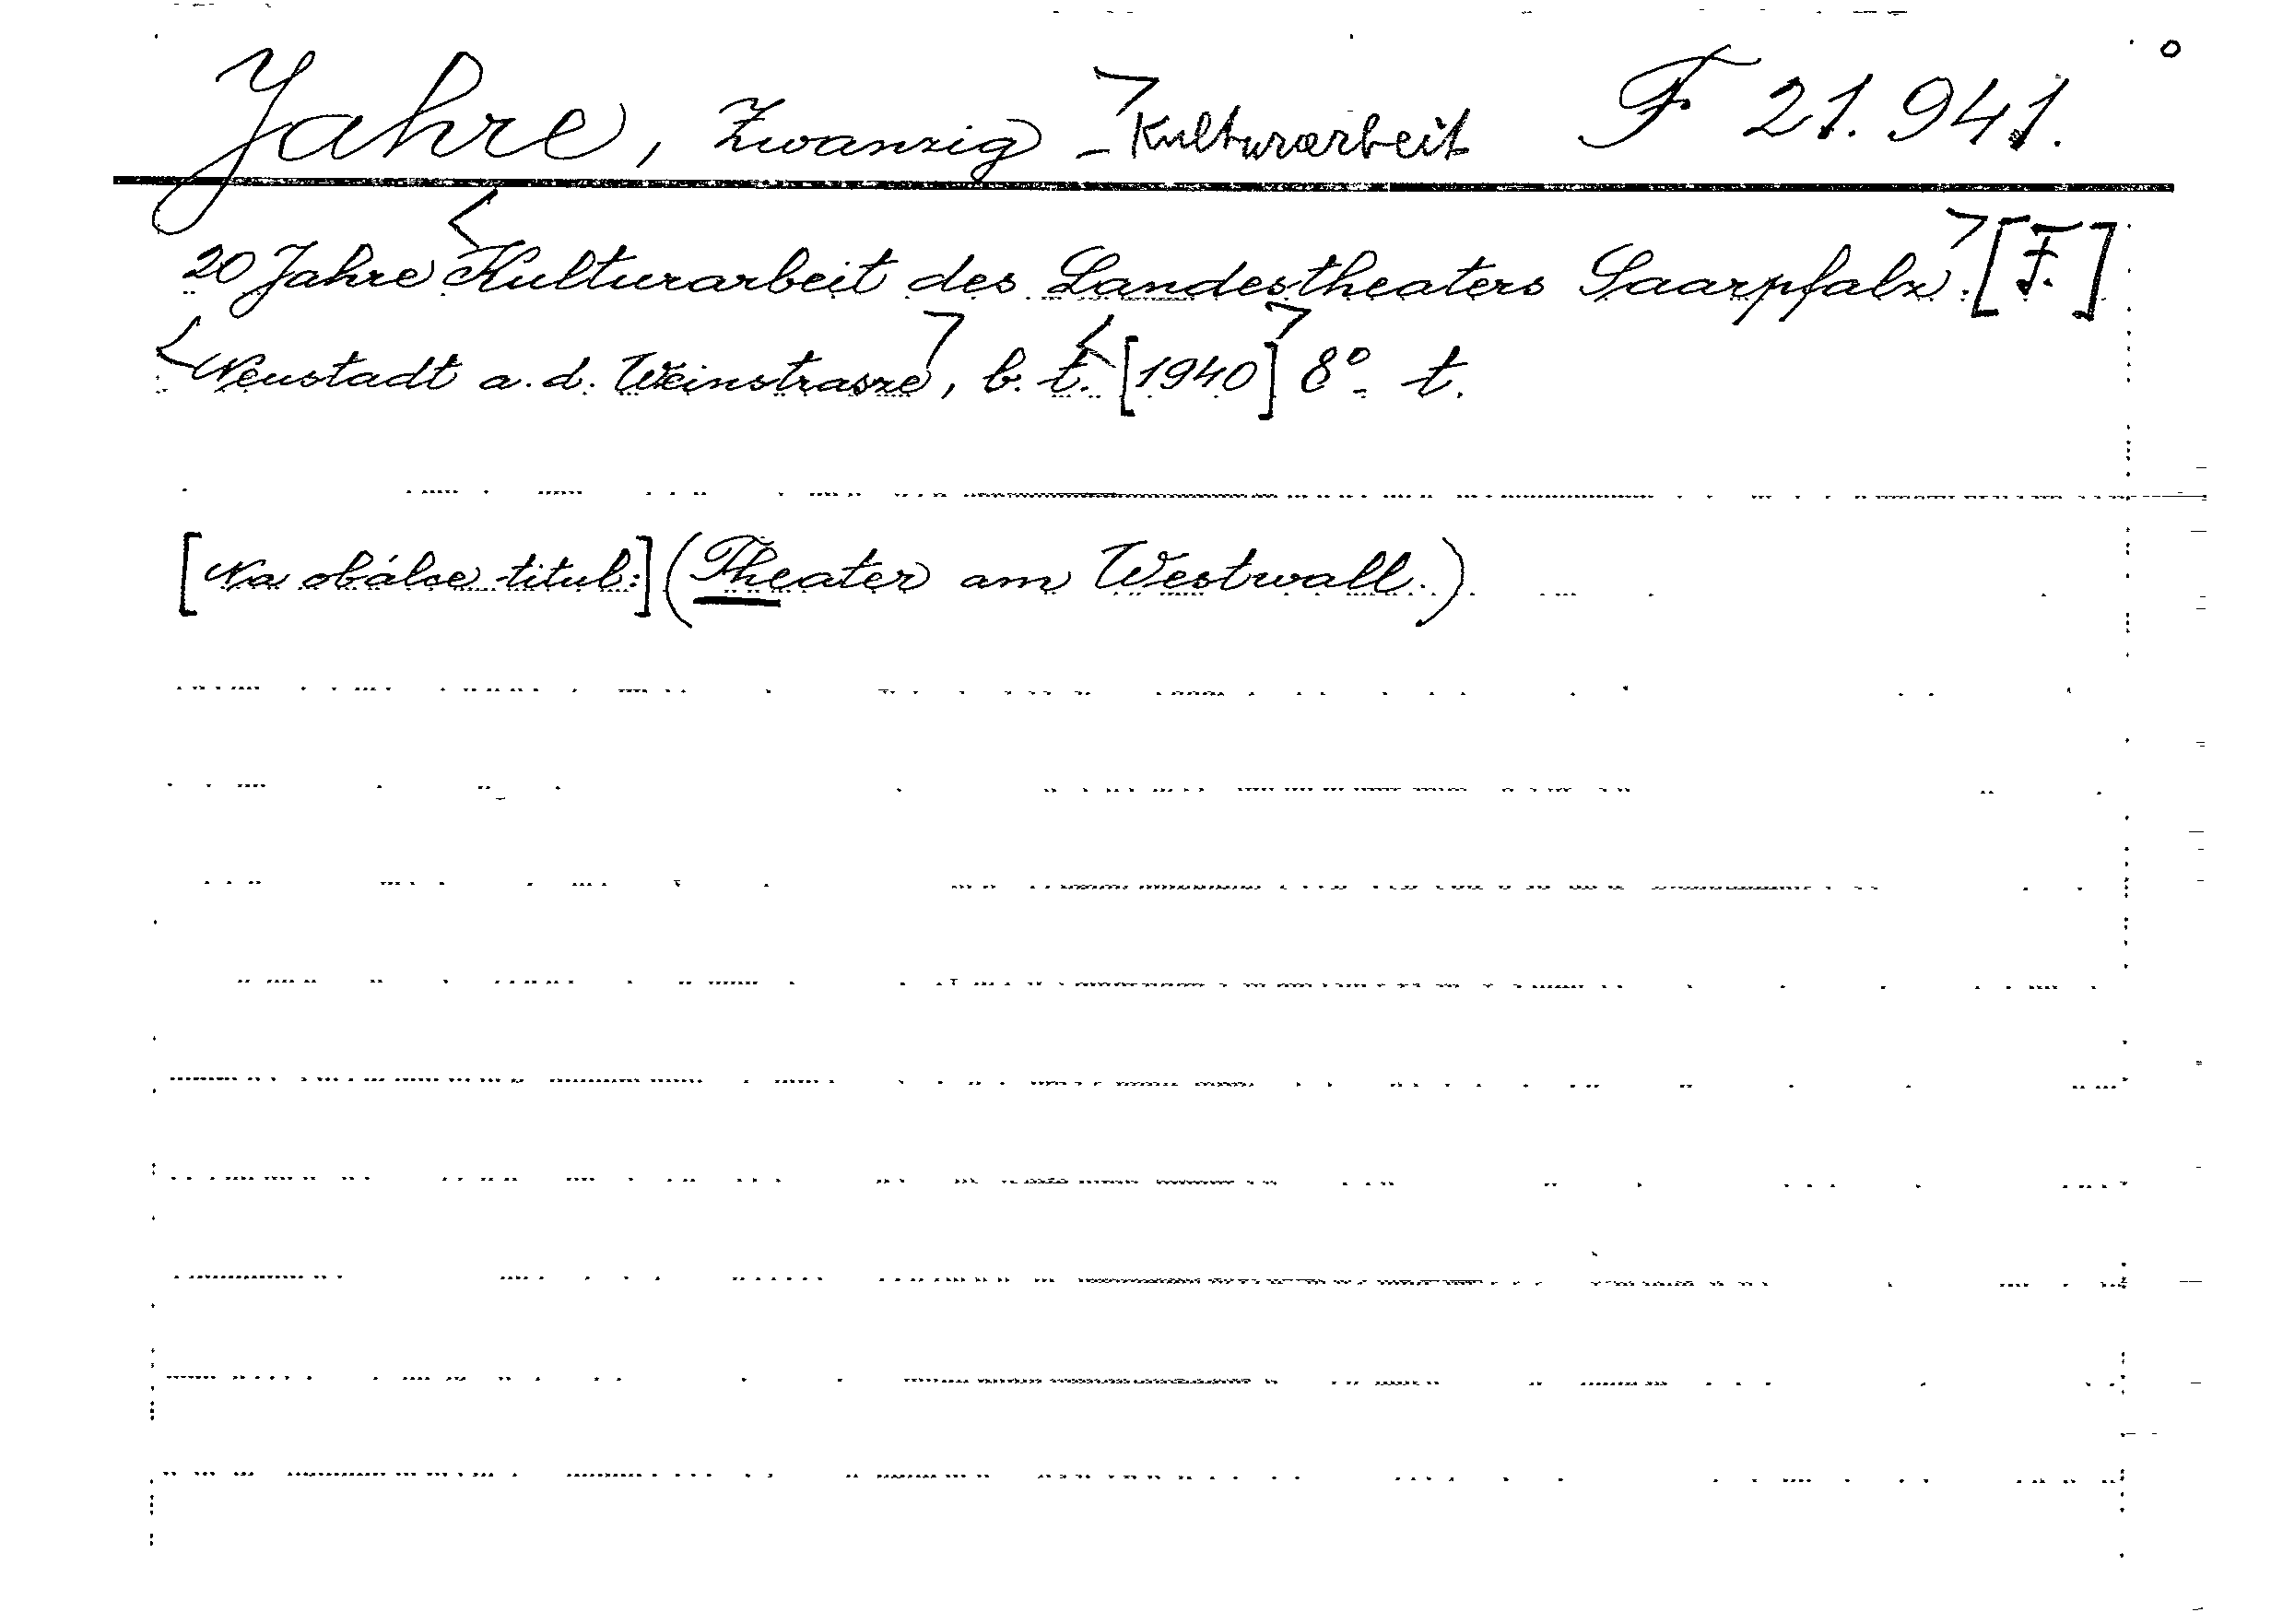 Jahre, Zwanzig - Kulturarbeit F 21.941.
20 Jahre Kulturarbeit des Landestheaters Saarpfalz. [F.]
Neustadt a. d. Weinstrasze, b. t. [1940] 8° t.
[Na obálce titul:] (Theater am Westwall.)